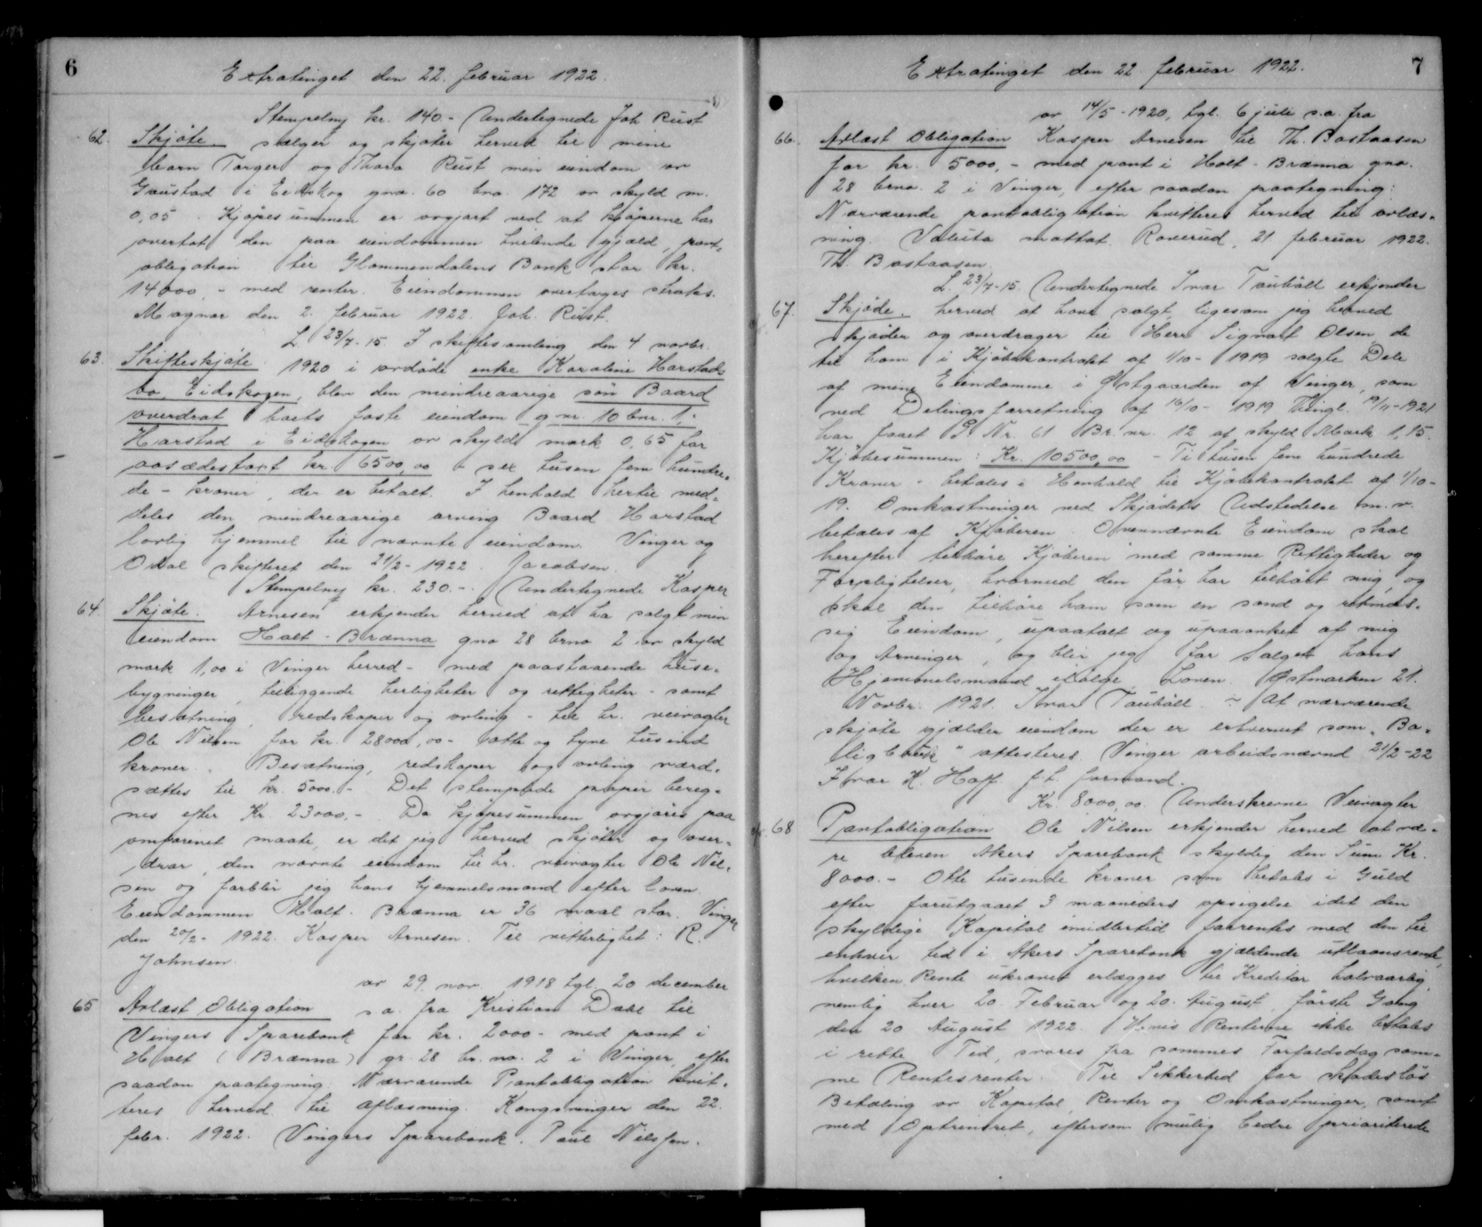 6
Extratinget den 22. februar 1922.
Stempelmf kr. 140 - Undertegnede Joh Rust
62. Skjøte. sælger og skjøter herved til mine
barn Torger og Thora Rust min eiendom
Gaustad i Eidskog gno. 60 bno. 172 av skyld m.
0,05. Kjøpesummen er avgjort ved at kjøperne har
overtat den paa eiendommen hvilende gjæld, pant-
obligation til Glommendalens Bank stor kr.
14000,- med renter. Eiendommen overtages straks.
Magnor den 2. februar 1922. Joh. Rust.
L 23/7-15. I skiftesamling den 4 novbr.
63. Skifteskjøte 1920 i avdøde enke Karoline Harstads
bo, Eidskogen, blev den mindreaarige søn Baard
overdrat boets faste eiendom gnr. 10 bnr. 1,
Harstad i Eidskogen av skyld mark 0,65 for
aasædestaxt kr. 6500,00 - sex tusen fem hundre-
de - kroner, der er betalt. I henhold hertil med-
deles den mindreaarige arving Baard Harstad
lovlig hjemmel til nævnte eiendom. Vinger og
Odal skifteret den 21/2-1922. Jacobsen.
Stempelmf kr. 230.-. Undertegnede Kasper
64. Skjøte. Arnesen erkjender herved at ha solgt min
eiendom Holt-Brænna gno 28 bno 2 av skyld
mark 1,00 i Vinger herred - med paastaaende huse-
bygninger, tilliggende herligheter og rettigheter - samt
besætning, redskaper og avling - til hr. veivogter
Ole Nilsen for kr. 28000,00 - otte og tyve tusind
kroner. Besætning, redskaper og avling værd-
sættes til kr. 5000.- Det stemplede papir bereg-
nes efter Kr. 23000,- Da kjøpesummen avgjøres paa
omforenet maate, er det jeg herved skjøter og over-
drar den nævnte eiendom til hr. veivogter Ole Nil-
sen og forblir jeg hans hjemmelsmand efter loven.
Eiendommen Holt-Brænna er 36 maal stor. Vinger
den 20/2-1922. Kasper Arnesen. Til vitterlighet: R.
Johnsen.
av 29. nov. 1918 tgl. 20 december
65 Avlæst Obligation s.a. fra Kristian Dahl til
Vingers Sparebank for kr. 2000- med pant i
Holt (Brænna) gr. 28 br. no. 2 i Vinger, efter
saadan paategning: Nærværende Pantobligation kvit-
teres herved til aflæsning. Kongsvinger den 22.
febr. 1922. Vingers Sparebank. Paul Nilsen.
7
Extratinget den 22 februar 1922.
av 14/5-1920, tgl. 6 juli s.a. fra
66. Avlæst Obligation Kasper Arnesen til Th. Bastaasen
for kr. 5000,- med pant i Holt-Brænna gno.
28 brno. 2 i Vinger, efter saadan paategning:
Nærværende pantobligation kvitteres herved til avlæs-
ning. Valuta mottat. Roverud, 21 februar 1922.
Th. Bastaasen
L. 23/7-15. Undertegnede Ivar Taubøll erkjender
67. Skjøde. herved at have solgt, ligesom jeg herved
skjøder og overdrager til Herr Sigvart Olsen de
til ham i Kjøbekontrakt af 1/10-1919 solgte Dele
af mine Eiendomme i Østgaarden af Vinger, som
ved Delingsforretning af 16/10-1919 Thingl. 19/4-1921
har faaet G. Nr. 61 Br. nr. 12 af skyld Mark 1,15.
Kjøbesummen: Kr. 10500,00 - Ti tusen fem hundrede
Kroner - betales i Henhold til Kjøbekontrakt af 1/10-
19. Omkostninger ved Skjødets Udstedelse m.v.
betales af Kjøberen. Ovennævnte Eiendom skal
herefter tilhøre Kjøberen med samme Rettigheder og
Forpligtelser, hvormed den før har tilhørt mig, og
skal den tilhøre ham som en sand og retmæs-
sig Eiendom, upaatalt og upaaanket af mig
og Arvinger, og blir jeg for Salget hans
Hjemmelsmand ifølge Loven. Østmarken 21.
Novbr. 1921. Ivar Taubøll. ~ At nærværende
skjøte gjælder eiendom der er erhvervet som "Bo-
ligbruk" attesteres. Vinger arbeidsnævnd 21/2-22
Ivar K. Hoff. f.t. formand.
Kr. 8000,00. Underskrevne Veivogter
68 Pantobligation Ole Nilsen erkjender herved at væ-
re bleven Akers Sparebank skyldig den Sum Kr.
8000.- Otte tusende kroner som betales i Guld
efter forutgaaet 3 maaneders opsigelse idet den
skyldige Kapital imidlertid forrentes med den til
enhver tid i Akers Sparebank gjældende utlaansrente,
hvilken Rente ukrævet erlægges til Kreditor halvaarlig,
nemlig hver 20. Februar og 20. August, første Gang
den 20 August 1922. Hvis Renterne ikke betales
i rette Tid, svares fra sammes Forfaldsdag sam-
me Rentesrenter. Til Sikkerhed for skadesløs
Betaling av Kapital, Renter og Omkostninger, samt
med Optrinsret, eftersom mulig bedre prioriterede